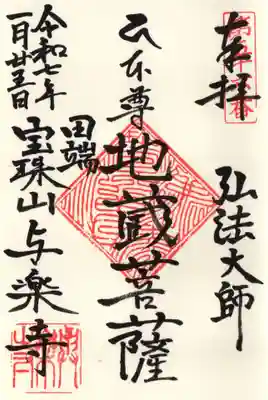 奉拝
弘法大師
本尊
地蔵菩薩
田端
宝珠山与楽寺
令和七年
一月廿五日